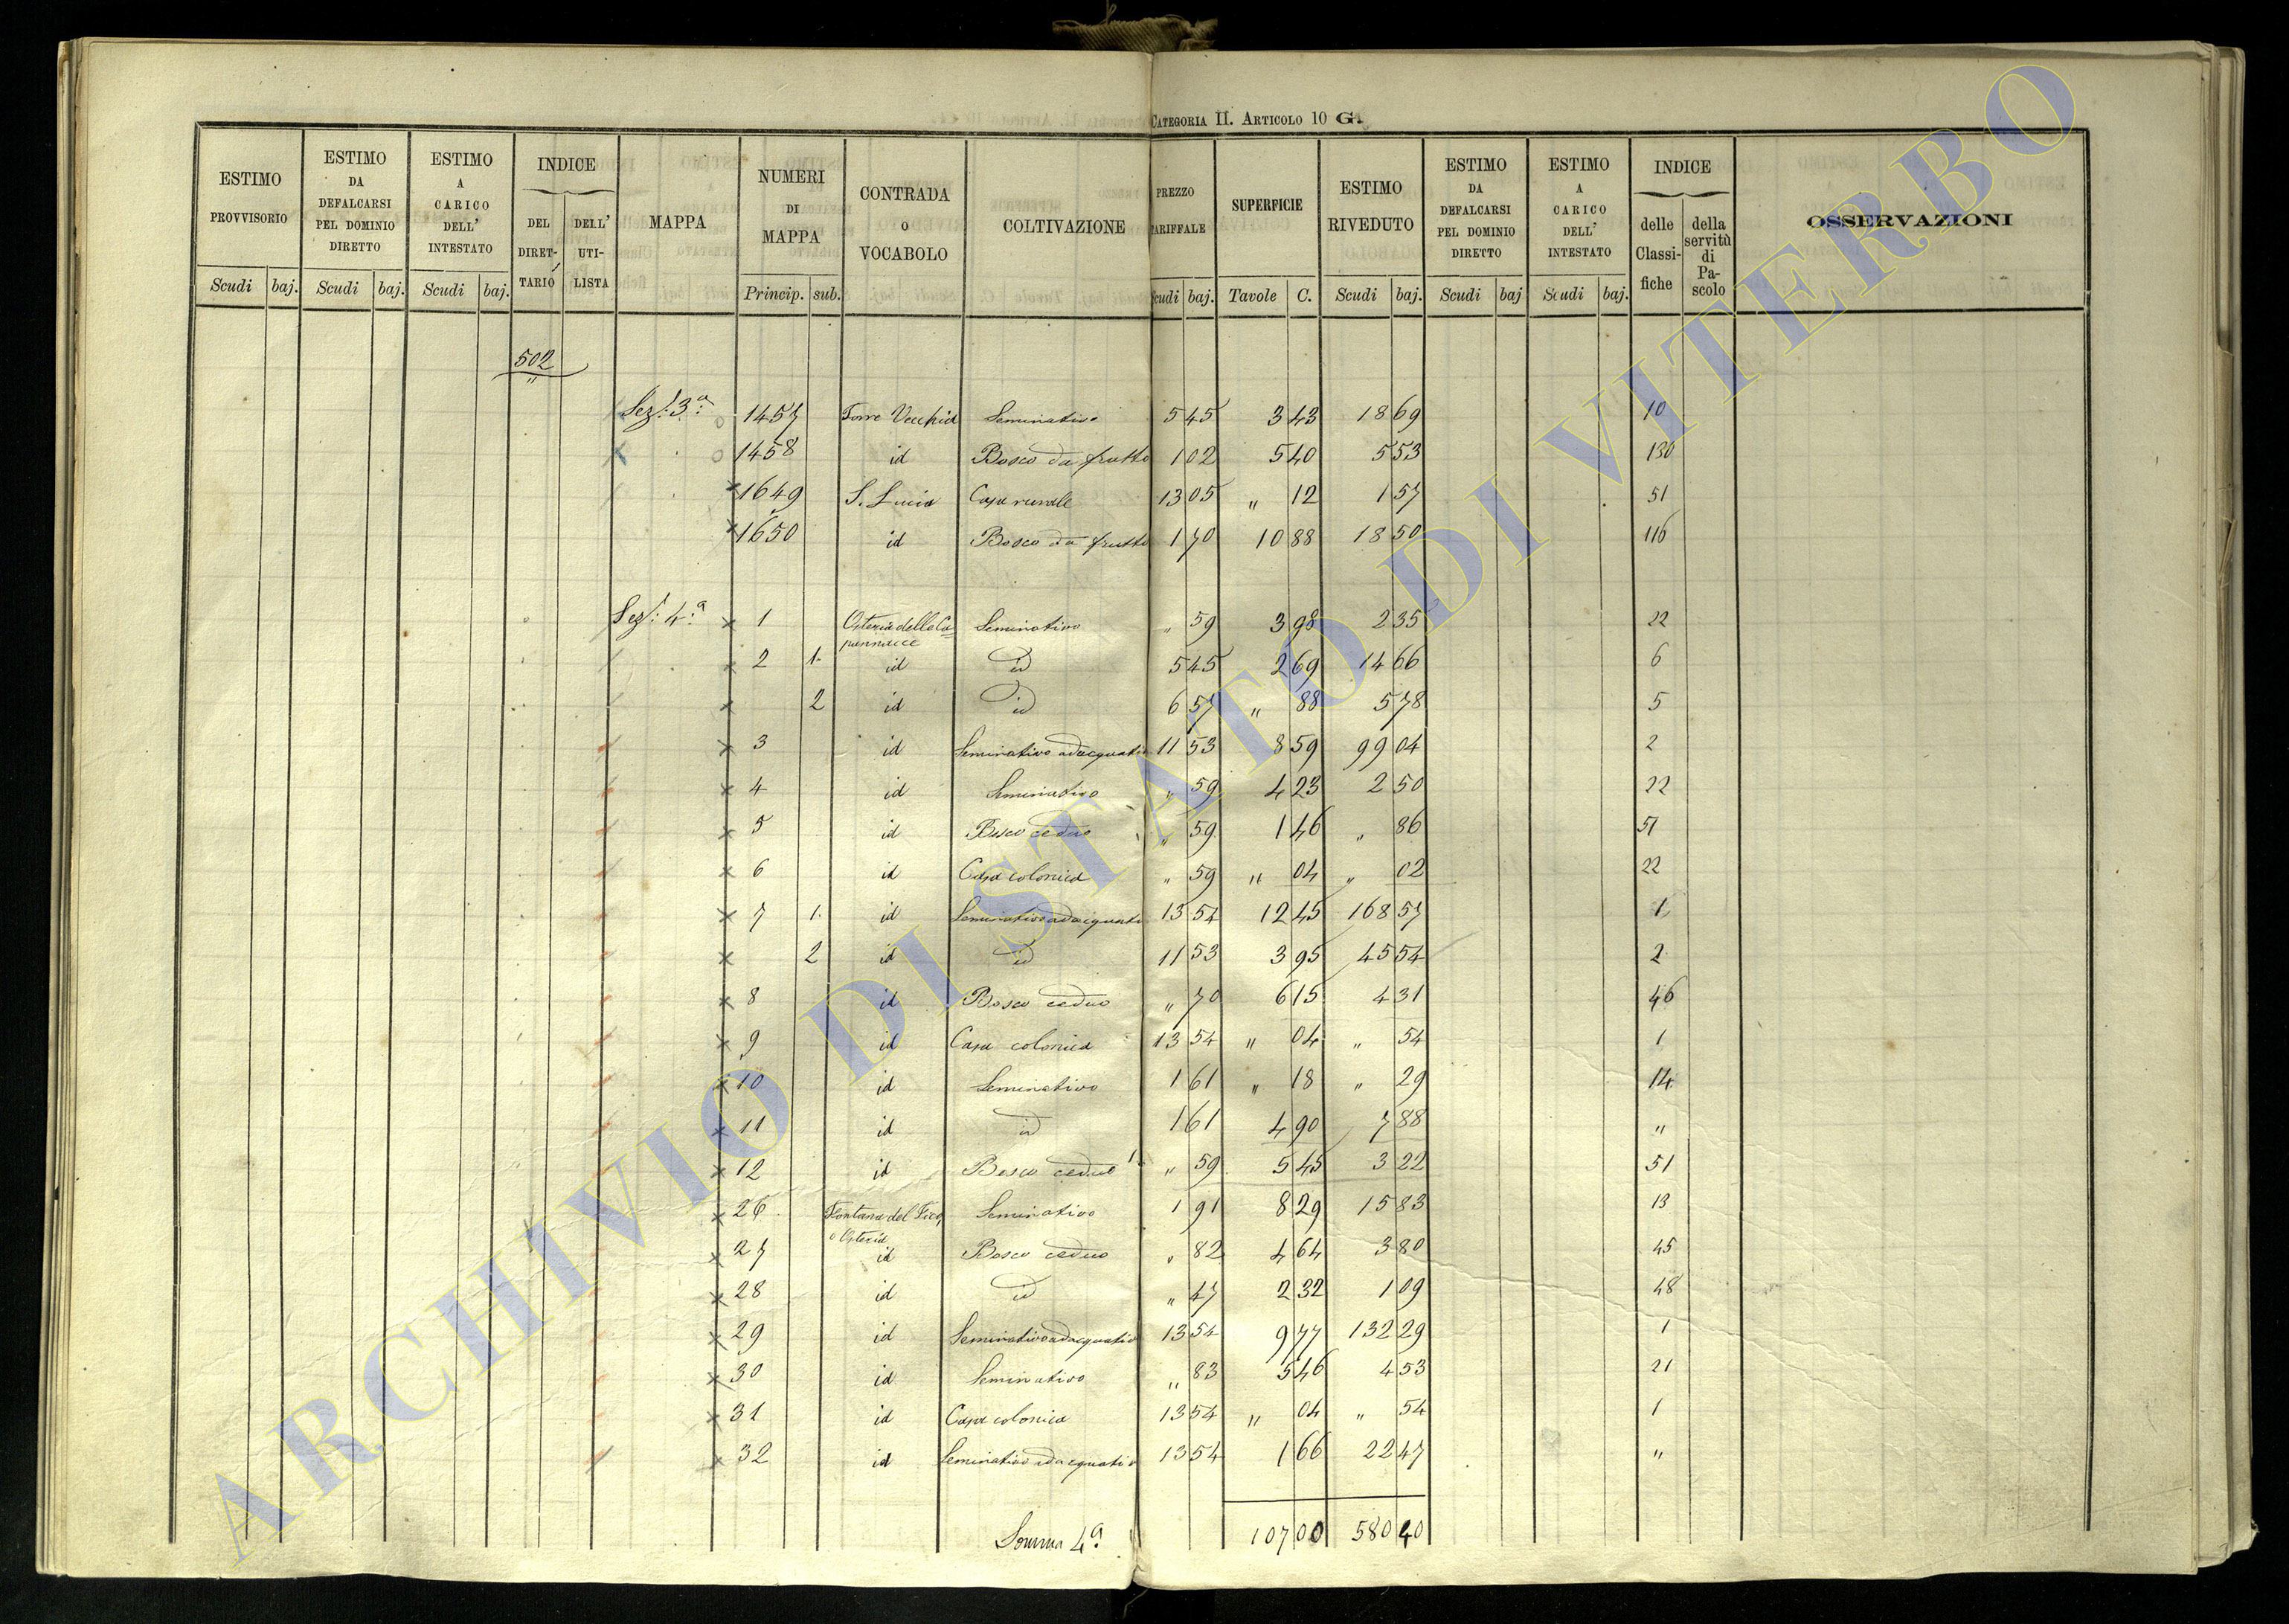 CATEGORIA II. ARTICOLO 10 G.
ESTIMO PROVVISORIO Scudi baj.
ESTIMO DA DEFALCARSI PEL DOMINIO DIRETTO Scudi baj.
ESTIMO A CARICO DELL' INTESTATO Scudi baj.
INDICE DEL DIRET-TARIO DELL' UTI-LISTA
MAPPA
NUMERI DI MAPPA Princip. sub.
CONTRADA o VOCABOLO
COLTIVAZIONE
PREZZO TARIFFALE Scudi baj.
SUPERFICIE Tavole C.
ESTIMO RIVEDUTO Scudi baj.
ESTIMO DA DEFALCARSI PEL DOMINIO DIRETTO Scudi baj
ESTIMO A CARICO DELL' INTESTATO Scudi baj.
INDICE delle Classi-fiche della servitù di Pa-scolo
OSSERVAZIONI
502
"
Sez: 3ª 1457 Torre Vecchia Seminativo 5 45 3 43 18 69 10
1458 id Bosco da frutto 1 02 5 40 5 53 130
1649 S. Lucia Casa rurale 13 05 " 12 1 57 51
1650 id Bosco da frutto 1 70 10 88 18 50 116
Sez: 4ª 1 Osteria della Ca= Seminativo " 59 3 98 2 35 22
pannacce
2 1. id id 5 45 2 69 14 66 6
2 id id 6 57 " 88 5 78 5
3 id Seminativo adacquativo 11 53 8 59 99 04 2
4 id Seminativo " 59 4 23 2 50 22
5 id Bosco ceduo " 59 1 46 " 86 51
6 id Casa colonica " 59 " 04 " 02 22
7 1. id Seminativo adacquativo 13 54 12 45 168 57 1
2 id id 11 53 3 95 45 54 2
8 id Bosco ceduo " 70 6 15 4 31 46
9 id Casa colonica 13 54 " 04 " 54 1
10 id Seminativo 1 61 " 18 " 29 14
11 id id 1 61 4 90 7 88 "
12 id Bosco ceduo " 59 5 45 3 22 51
26 Fontana del Fico, Seminativo 1 91 8 29 15 83 13
o Osteria
27 id Bosco ceduo " 82 4 64 3 80 45
28 id id " 47 2 32 1 09 48
29 id Seminativo adacquativo 13 54 9 77 132 29 1
30 id Seminativo " 83 5 46 4 53 21
31 id Casa colonica 13 54 " 04 " 54 1
32 id Seminativo adacquativo 13 54 1 66 22 47 "
Somma 4ª 107 00 580 40
ARCHIVIO DI STATO DI VITERBO